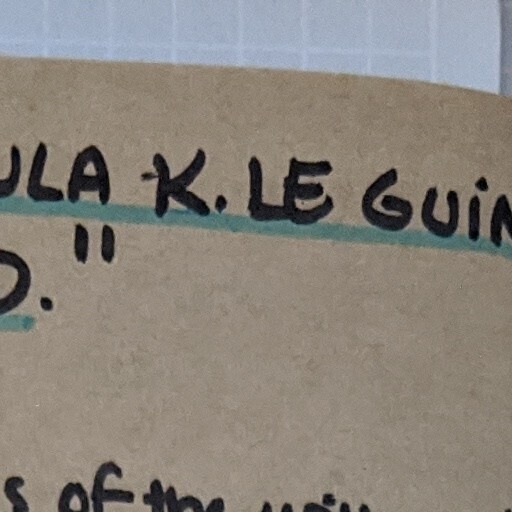 ULA K. LE GUIN
D."
s of the